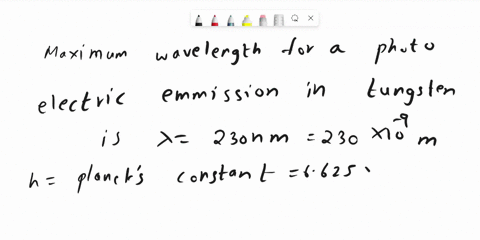 Maximum wavelength for a photo
electric emmission in tungsten
is λ= 230nm = 230 ×10⁻⁹ m
h= planck's constant = 6.625